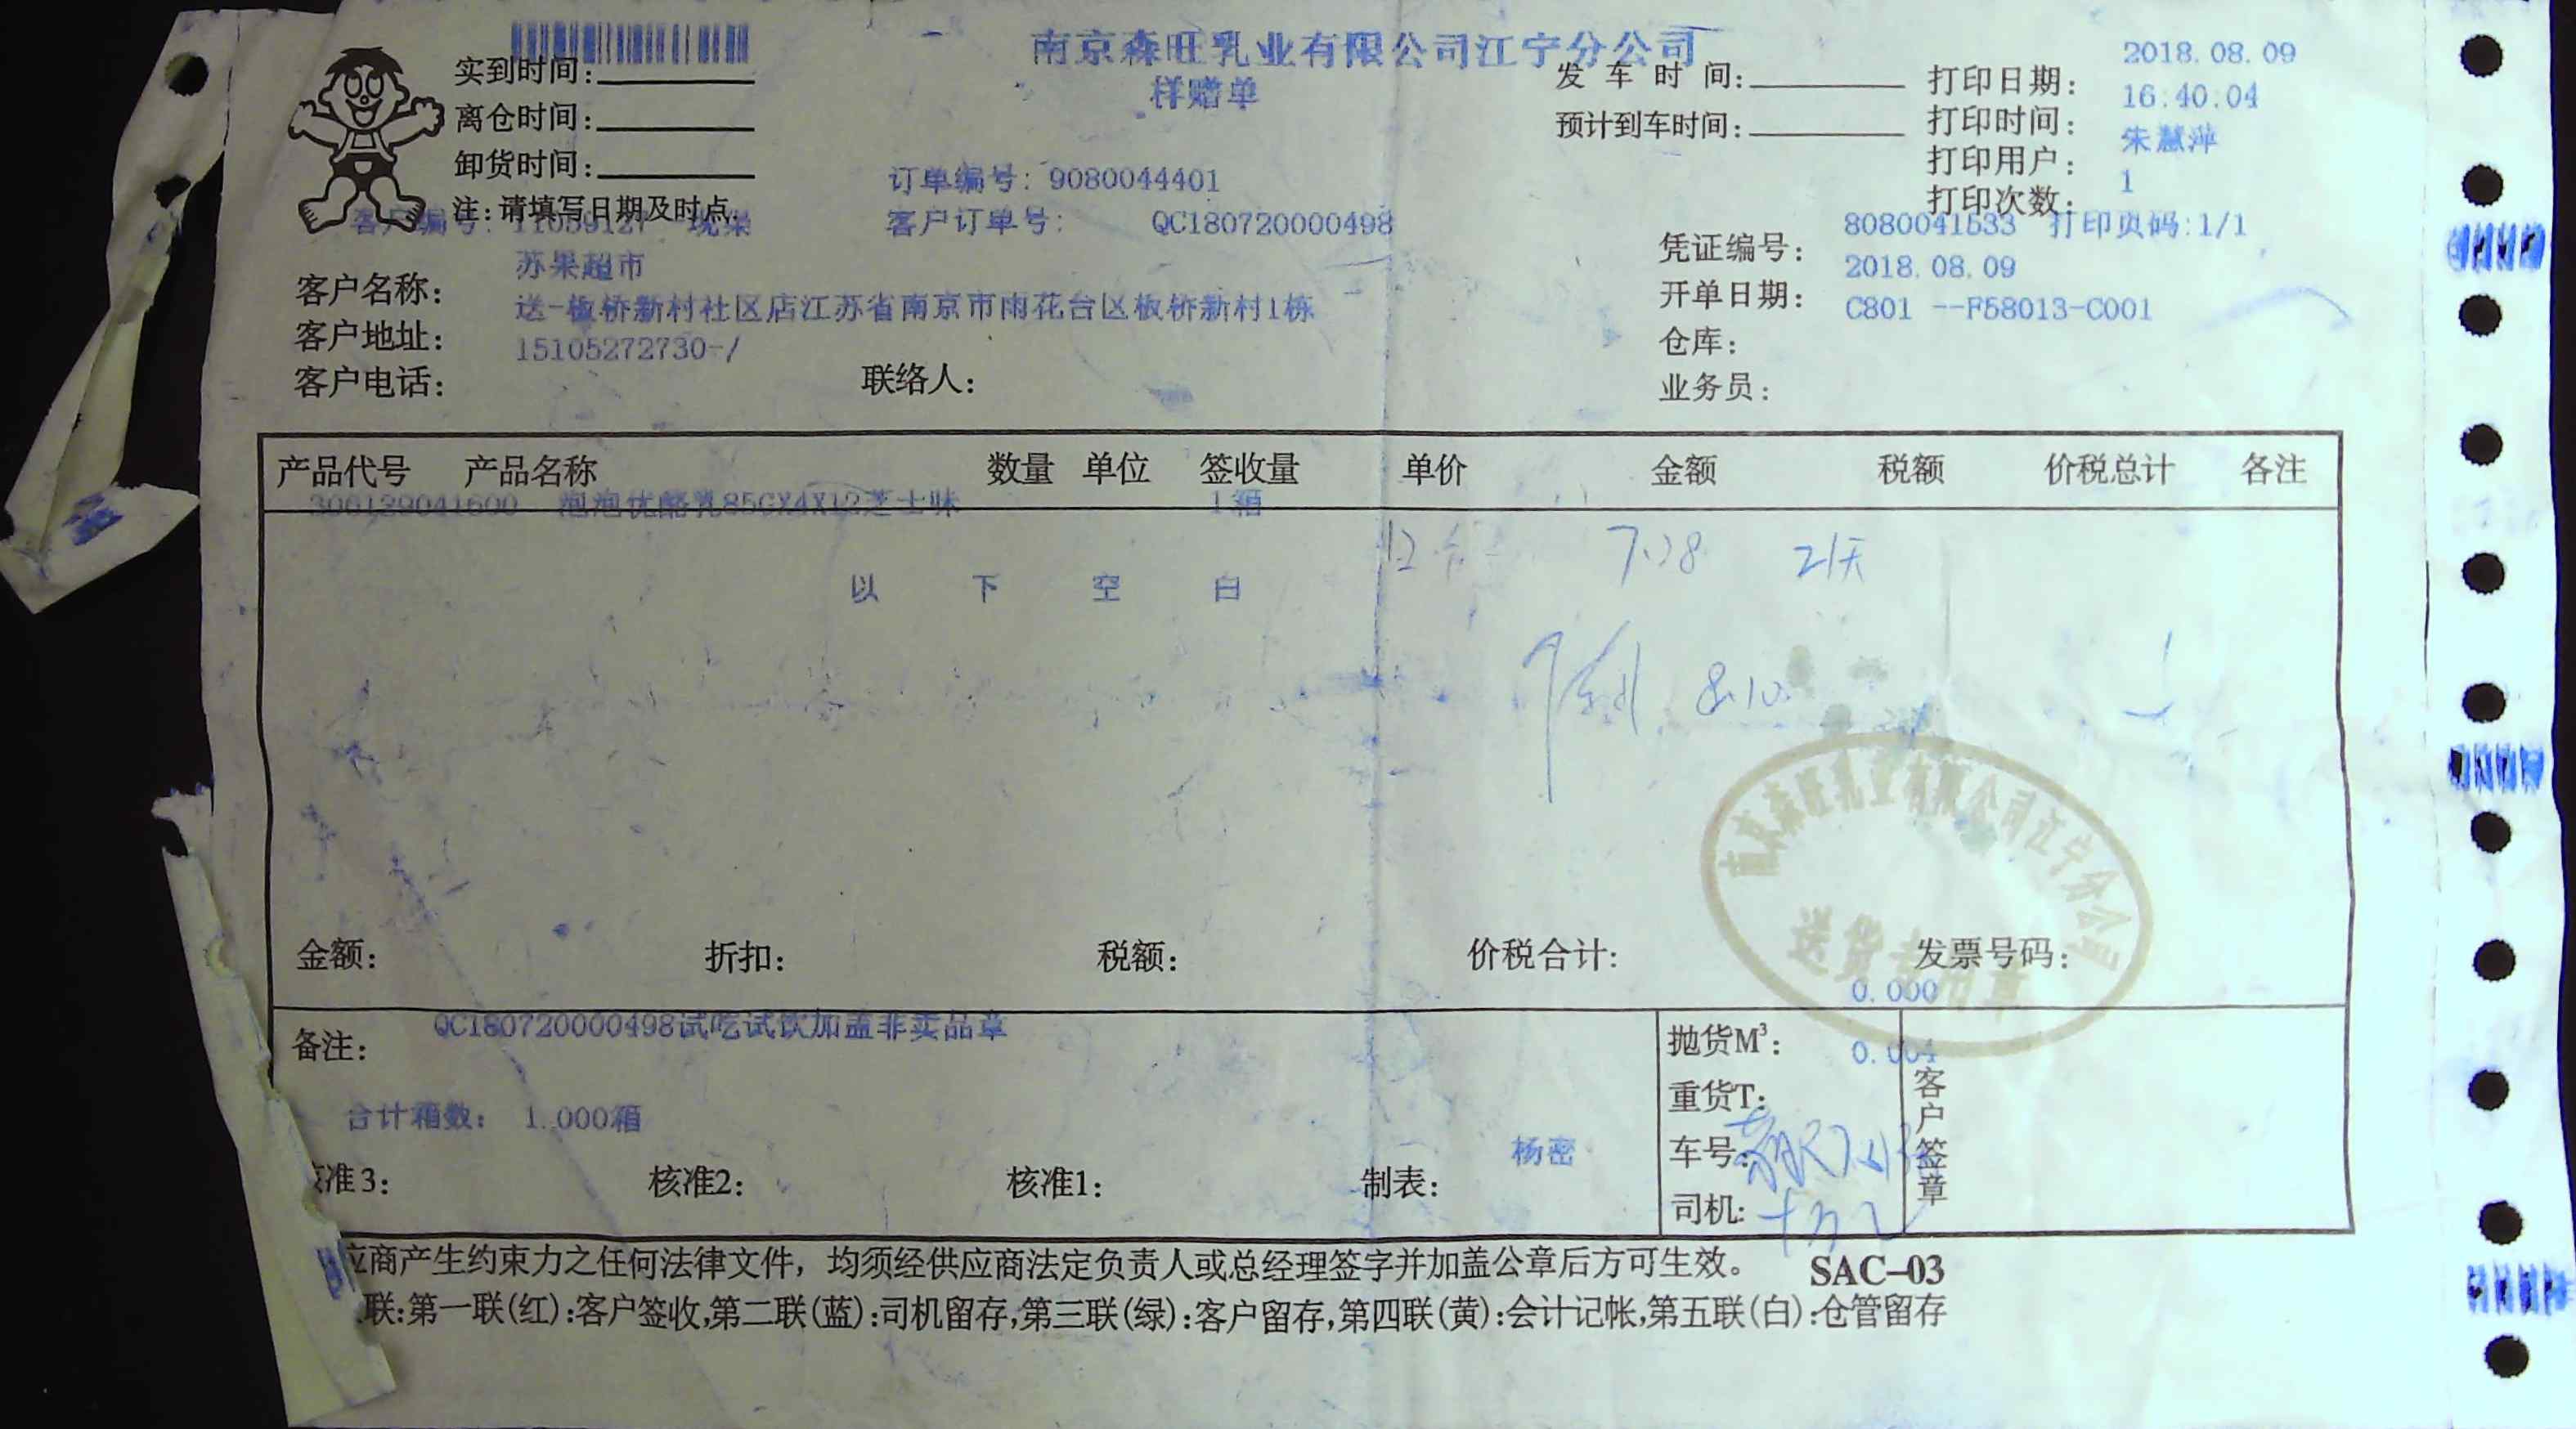 南京森旺乳业有限公司江宁分公司
样赠单
实到时间:
离仓时间:
卸货时间:
注:请填写日期及时点.
发 车 时 间:
预计到车时间:
打印日期: 2018.08.09
打印时间: 16:40:04
打印用户: 朱慧萍
打印次数: 1
订单编号: 9080044401
客户编号: 11059127
客户订单号: QC180720000498
凭证编号: 8080041533 打印页码:1/1
开单日期: 2018.08.09
仓库: C801 --F58013-C001
业务员:
客户名称: 苏果超市
客户地址: 送-板桥新村社区店江苏省南京市雨花台区板桥新村1栋
客户电话: 15105272730-/
联络人:
产品代号 产品名称 数量 单位 签收量 单价 金额 税额 价税总计 各注
306129041600 泡泡优酪乳85GX4X12芝士味 1箱
7.28 21天
以 下 空 白
8.10
南京森旺乳业有限公司江宁分公司
送货专用章
金额: 折扣: 税额: 价税合计: 发票号码:
备注: QC180720000498试吃试饮加盖非卖品章
合计箱数: 1.000箱
抛货M³: 0.000
重货T: 0.004
车号:
司机:
客户签章
准3: 核准2: 核准1: 制表: 杨密
应商产生约束力之任何法律文件，均须经供应商法定负责人或总经理签字并加盖公章后方可生效。 SAC-03
联:第一联(红):客户签收,第二联(蓝):司机留存,第三联(绿):客户留存,第四联(黄):会计记帐,第五联(白):仓管留存